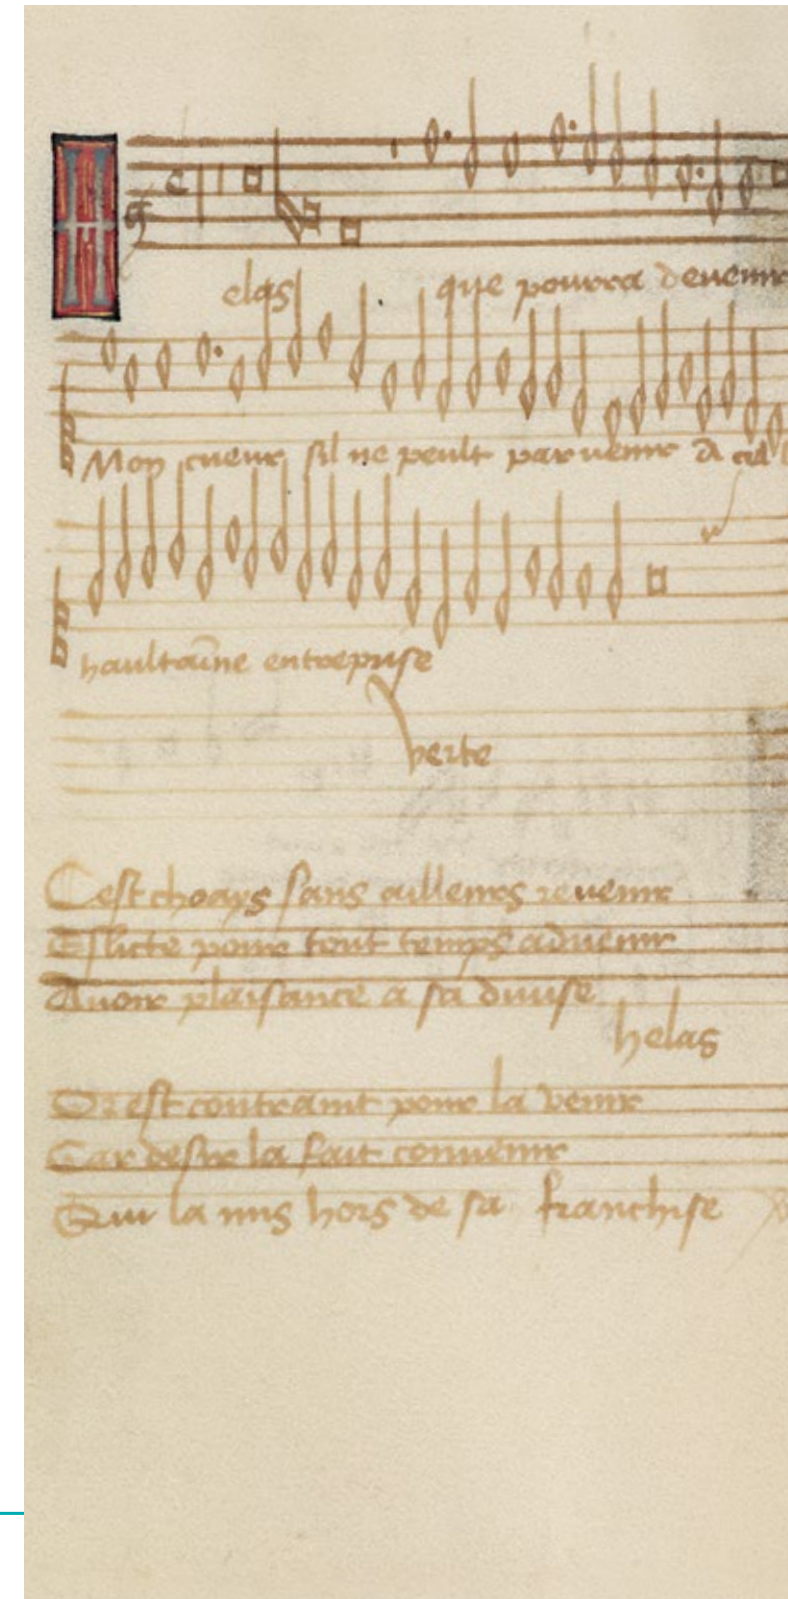 Helas que pourra devenir
Mon cueur sil ne peult parvenir A
haultaine entreprise
verte
Cest choays sans ailleurs revenir
Eslicte pour tout temps advenir
Avoir plaisance a sa divise
helas
Or est contraint pour la venir
Car desir la fait convenir
Qui la mis hors de sa franchise